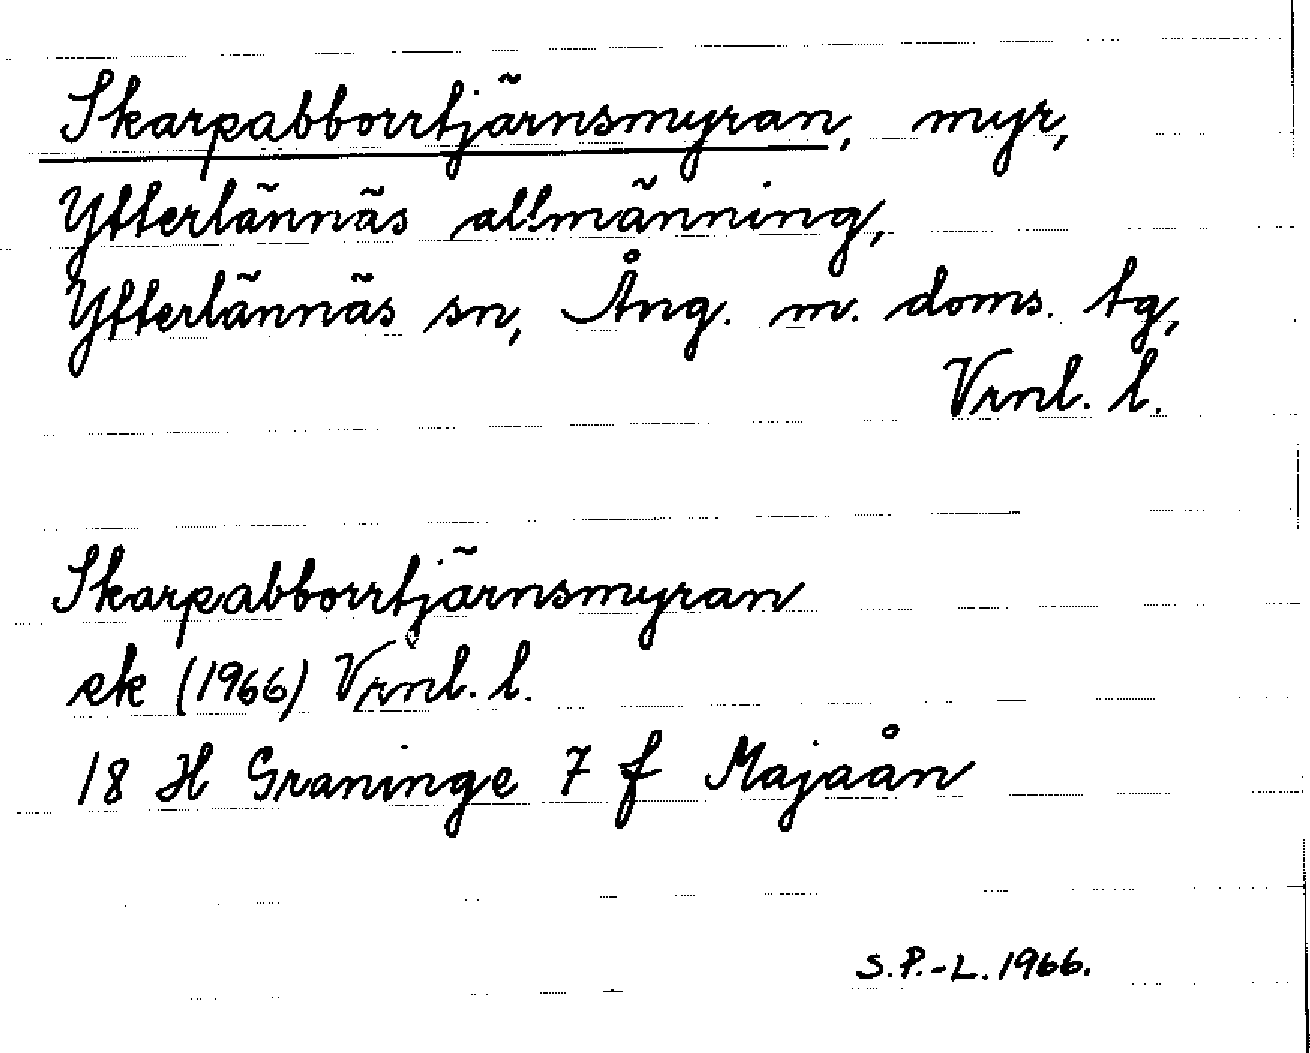 Skarpabborrtjärnsmyran, myr,
Ytterlännäs allmänning,
Ytterlännäs sn, Ång. m. doms. tg,
Vrnl. l.
Skarpabborrtjärnsmyran
ek (1966) Vrnl. l.
18 H Graninge 7 f Majaån
S.P.-L. 1966.